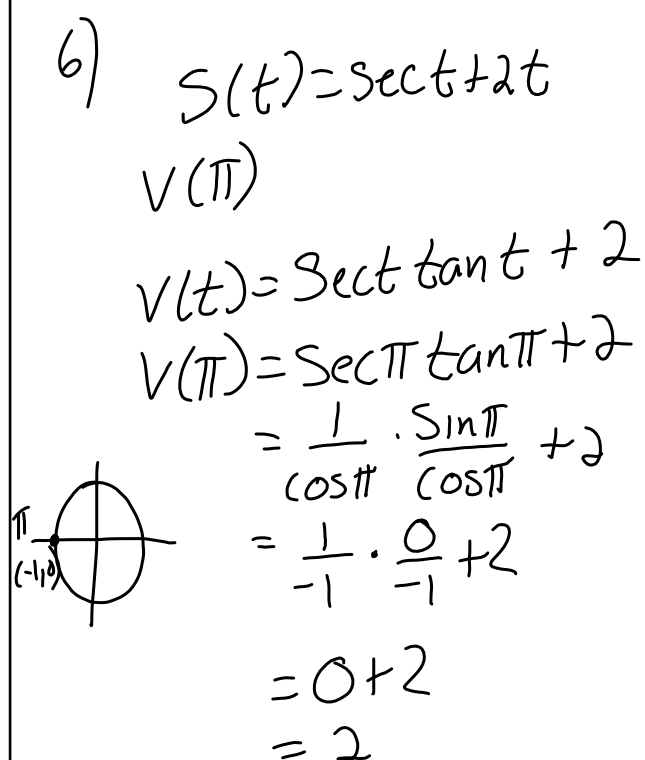 6) S(t)=sect+2t
V(π)
V(t)=Sect tant + 2
V(π)=Secπ tanπ+2
= 1/cosπ · Sinπ/cosπ +2
π
(-1,0)
= 1/-1 · 0/-1 +2
=0+2
=2